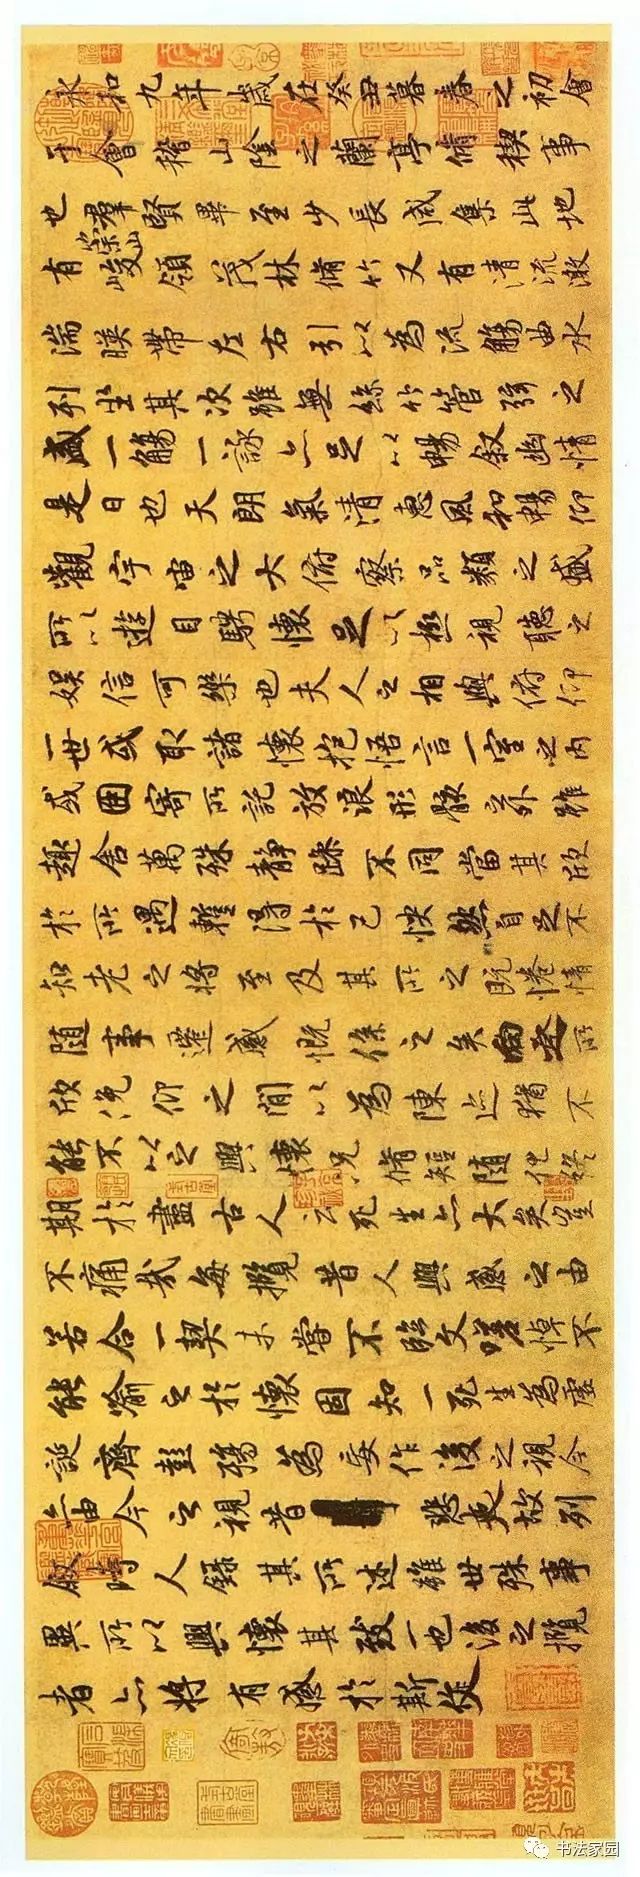 永和九年歲在癸丑暮春之初會
于會稽山陰之蘭亭脩禊事
也羣賢畢至少長咸集此地
有崇山峻領茂林脩竹又有清流激
湍暎帶左右引以為流觴曲水
列坐其次雖無絲竹管弦之
盛一觴一詠亦足以暢叙幽情
是日也天朗氣清惠風和暢仰
觀宇宙之大俯察品類之盛
所以遊目騁懷足以極視聽之
娛信可樂也夫人之相與俯仰
一世或取諸懷抱悟言一室之內
或因寄所託放浪形骸之外雖
趣舍萬殊靜躁不同當其欣
於所遇暫得於己怏然自足不
知老之將至及其所之既惓情
隨事遷感慨係之矣向之所
欣俛仰之間以為陳迹猶不
能不以之興懷況脩短隨化終
期於盡古人云死生亦大矣豈
不痛哉每攬昔人興感之由
若合一契未嘗不臨文嗟悼不
能喻之於懷固知一死生為虛
誕齊彭殤為妄作後之視今
亦由今之視昔悲夫故列
敘時人錄其所述雖世殊事
異所以興懷其致一也後之攬
者亦將有感於斯文
书法家园